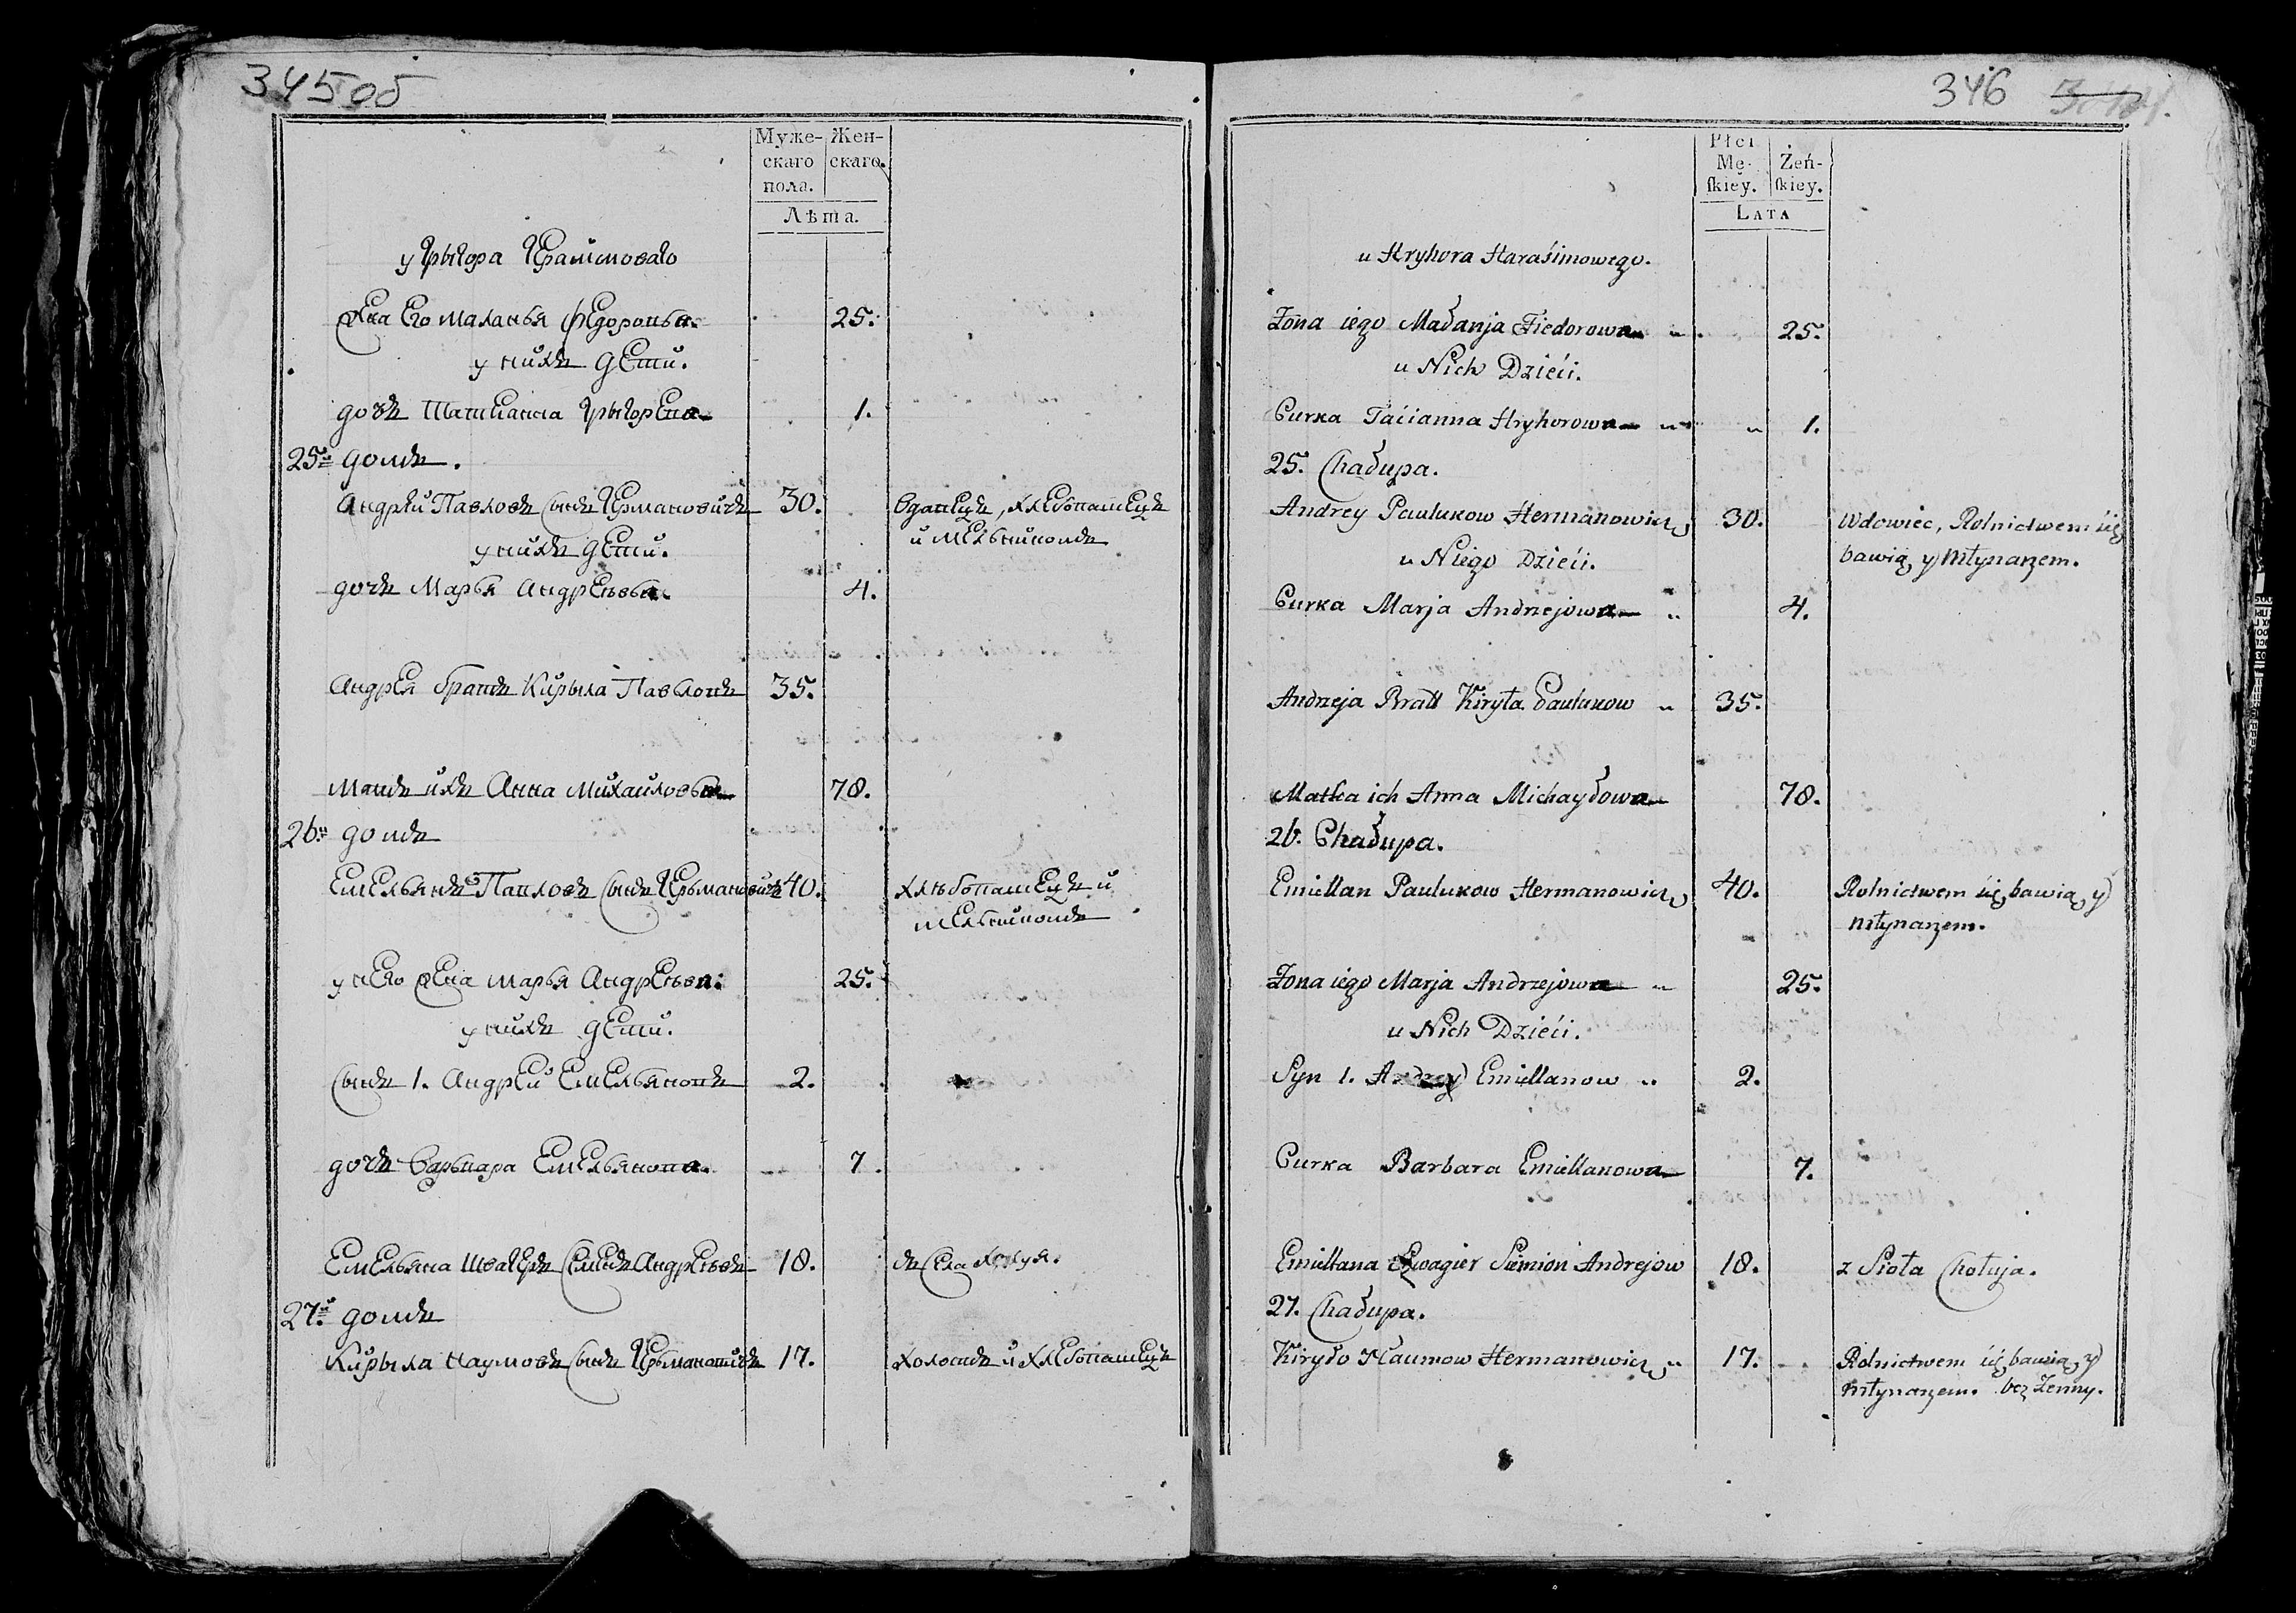 345об
Муже-
скаго
пола.
Жен-
скаго.
Лѣта.
у Грыгора Герасимоваго
жена Его Маланья Федорова 25.
у нихъ дети.
дочь Татианна Грыгорева 1.
25й домъ.
Андрей Павловъ сынъ Германовичъ 30. вдовецъ, хлебопашецъ
и мельникомъ
у нихъ дети.
дочь Марья Андреева 4.
Андрея братъ Кирыла Павловъ 35.
Мать ихъ Анна Михайлова 78.
26й домъ
Емельянъ Павловъ сынъ Германовичъ 40. хлѣбопашецъ и
мельникомъ
у него жена Марья Андреева 25.
у нихъ дети.
сынъ 1. Андрей Емельяновъ 2.
дочь Варвара Емельянова 7.
Емельяна швагеръ Семенъ Андреевъ 18. зъ села Хотуя.
27й домъ
Кирыла Наумовъ сынъ Германовичъ 17. холостъ и хлебопашецъ
346
Płci
Mę-
ſkiey.
Żeń-
ſkiey.
LATA
u Hryhora Haraśimowego.
Żona iego Małanja Fiedorowa „ 25.
u Nich Dzieći.
Curka Taćianna Hryhorowa „ „ 1.
25. Chałupa.
Andrey Paulukow Hermanowicz 30. Wdowiec, Rolnictwem śię
bawią, y Młynarzem.
u Niego Dzieći.
Curka Marja Andrzejowa „ 4.
Andrzeja Bratt Kiryła Paulukow „ 35.
Matka ich Anna Michayłowa 78.
26. Chałupa.
Emiellan Paulukow Hermanowicz 40. Rolnictwem śię bawią, y
Młynarzem.
Żona iego Marja Andrzejowa „ 25.
u Nich Dzieći.
Syn 1. Andrzey Emiellanow „ 2.
Curka Barbara Emiellanowa 7.
Emiellana Szwagier Siemion Andrejow 18. z Sioła Chotuja.
27. Chałupa.
Kiryło Naumow Hermanowicz „ 17. Rolnictwem śię bawią, y
Młynarzem. bez Żenny.